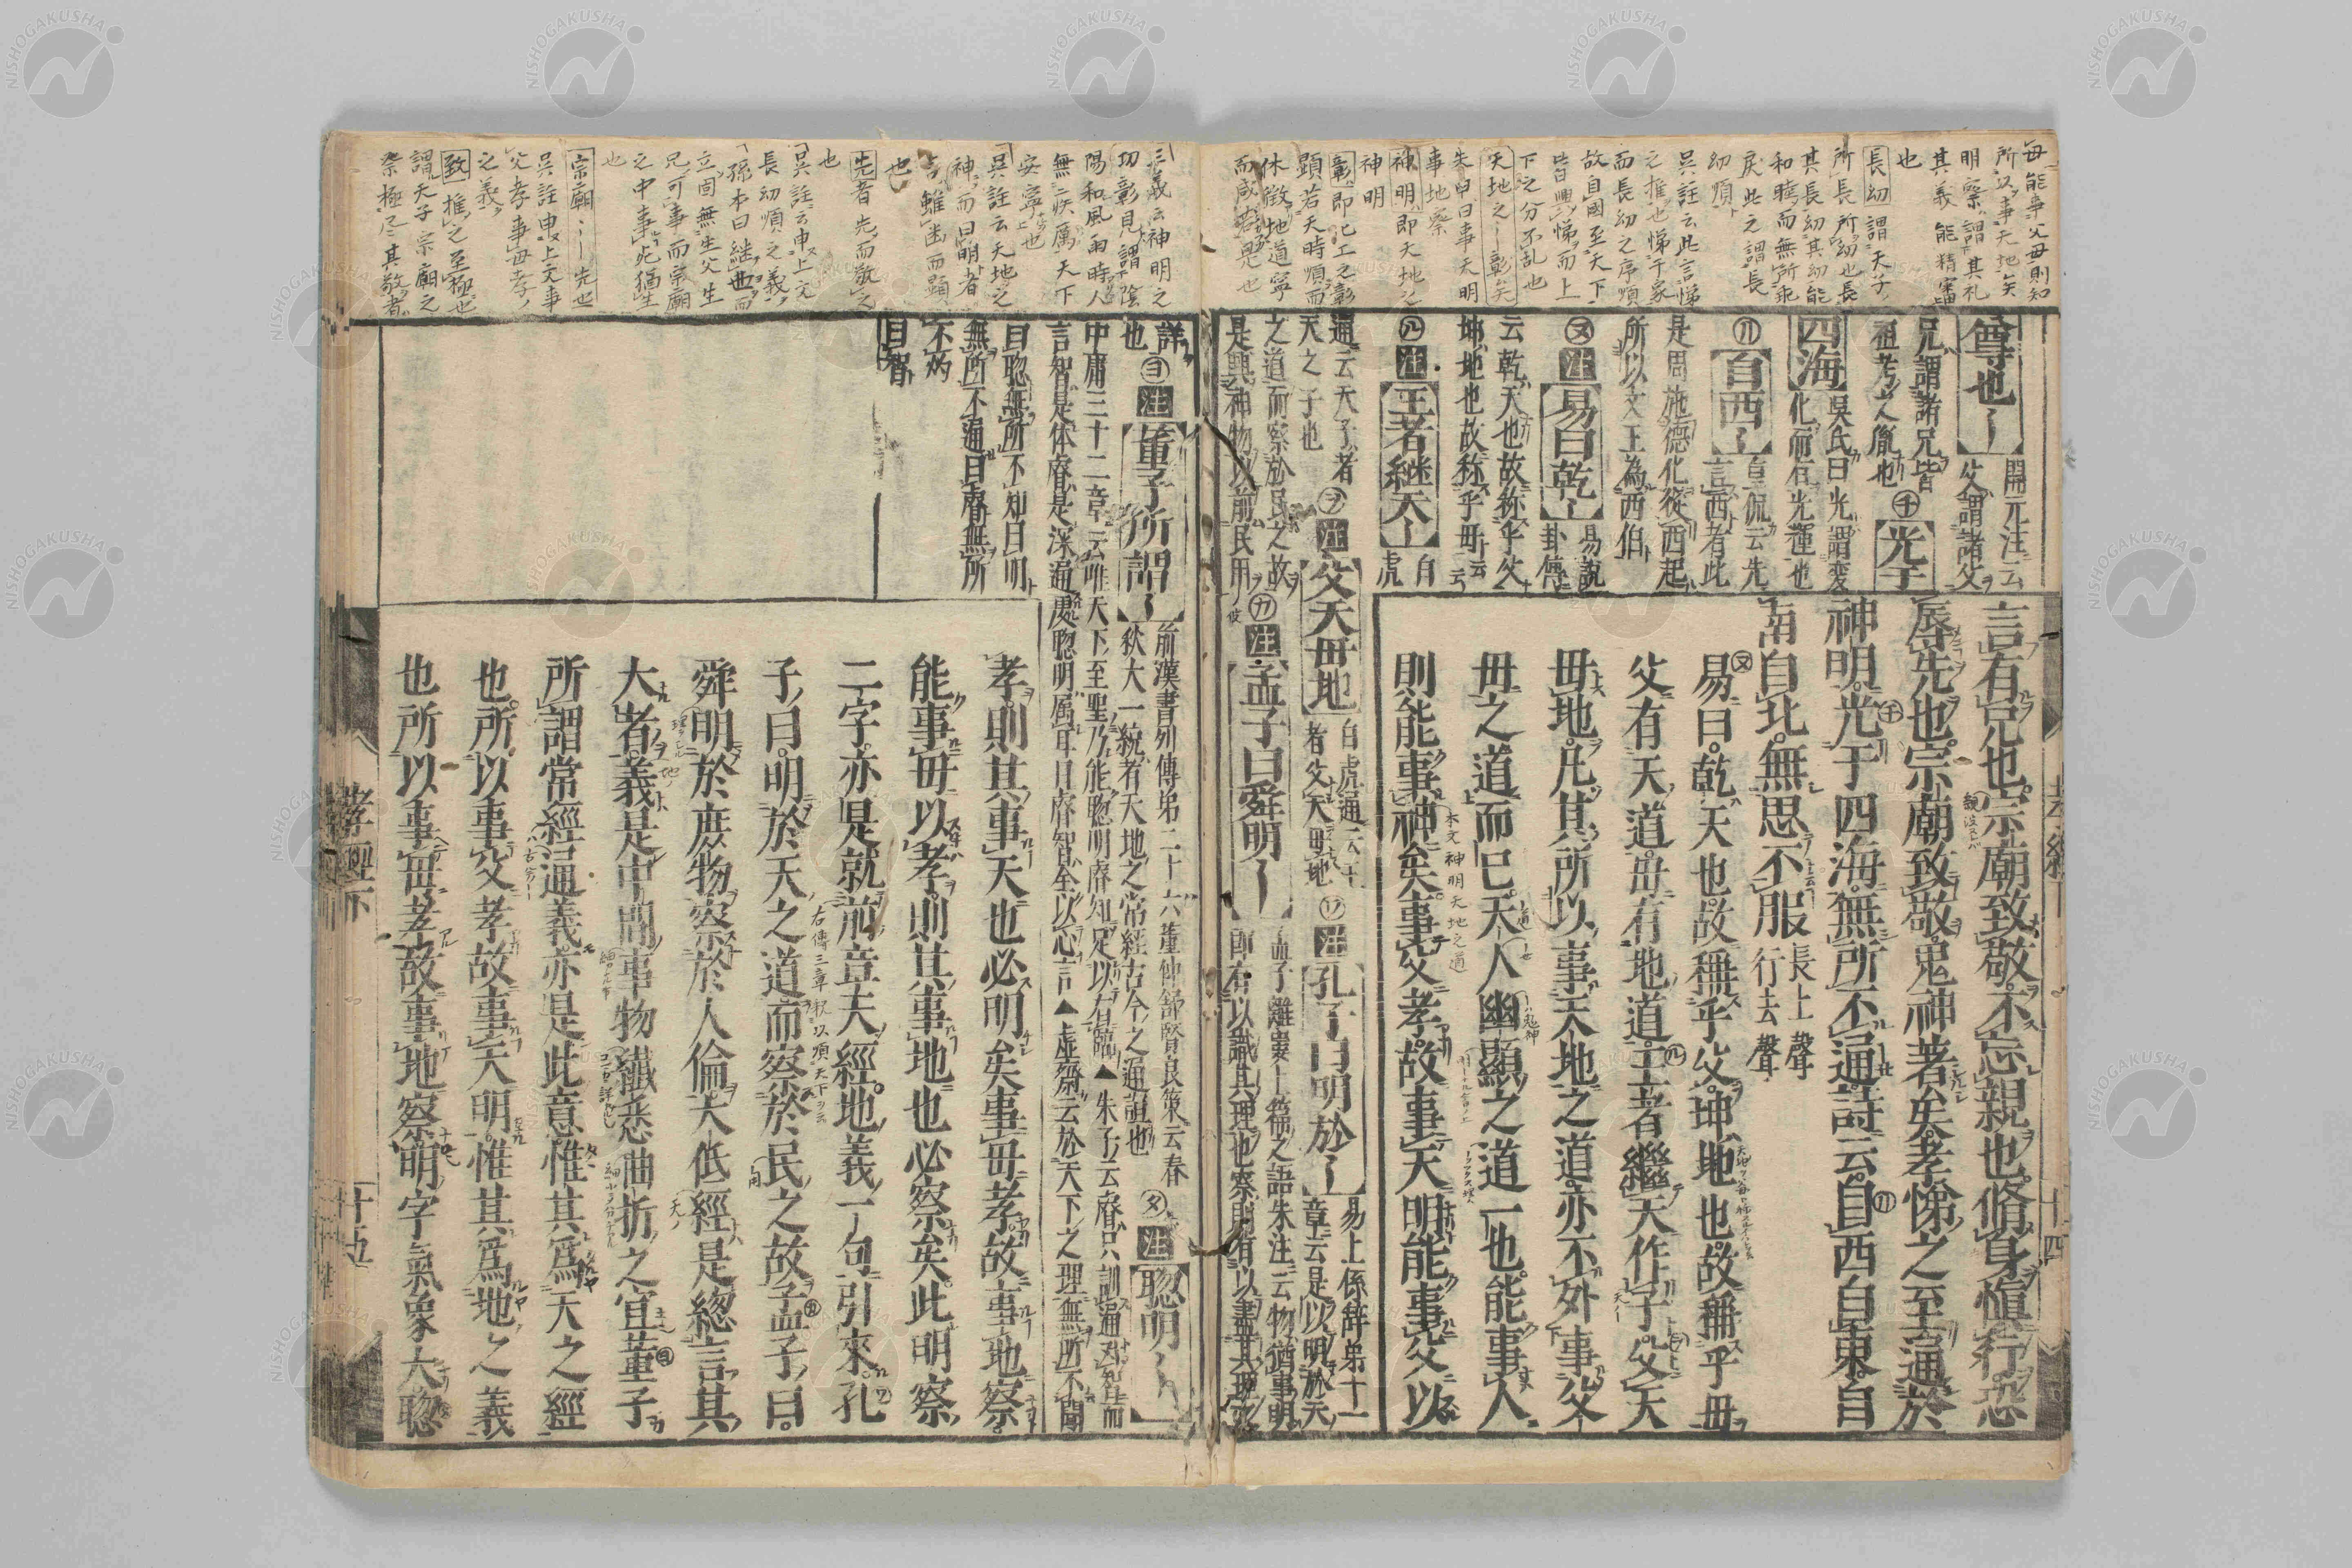 毎能事父母則知
所以事天地矣
明察謂其礼
其義能精審
也
長幼謂天子
所長所幼也長
其長幼其幼能
和睦而無所乖
戻此之謂長
幼順
呉註云此言悌
之推也悌于家
而長幼之序順
故自國至天下
皆興悌而上
下之分不乱也
天地之〡彰矣
朱申曰事天明
事地察
神明即天地之
神明
彰即上之彰
顕若天時順而
休徴地道寧
而咸若是也
尊也〡
開元注云
父謂諸父
兄謂諸兄皆
祖考之胤也
㋠光于
四海
呉氏曰光謂変
化而有光輝也
㋷自西〡
言西者此
是周施德化從西起
所以文王為西伯
㋦注易曰乾〡
易説
卦傳
云乾天也故称乎父
坤地也故称乎母云云
㋸注王者継天〡
白
虎
通云天子者
天之子也
㋾注父天母地
白虎通云王
者父天母地
㋻注孔子曰明於〡
易上係辞第十一
章云是以明於天
之道而察於民之故
是興神物以前民用
㋕注孟子曰舜明〡
孟子離婁上篇之語朱注云物猶事明
即有以識其理也察則有以盡其理
言有兄也宗廟致敬不忘親也脩身慎行恐
辱先也宗廟致敬鬼神著矣孝悌之至通於
神明光于四海無所不通詩云自西自東自
南自北無思不服
長上聲
行去聲
易曰乾天也故稱乎父坤地也故稱乎母
父有天道母有地道王者繼天作子父天
母地凡其所以事天地之道亦不外事父
母之道而已天人幽顯之道一也能事人
則能事神矣事父孝故事天明能事父以
孝經下
十四
三咸云神明之
功彰見謂陰
陽和風雨時人
無疾厲天下
安寧也
呉註云天地之
神而曰明者
言雖幽而顕
也
先者先而敬之
也
呉註云申上文
長幼順之義
孫本曰継世而
立固無生父生
兄可事而宗廟
之中事死猶生
也
宗廟〡先也
呉註申上文事
父孝事母孝
之義
致推之至極也
謂天子宗廟之
祭極尽其敬者
詳
也
㋵注董子所謂〡
前漢書列傳第二十六董仲舒賢良策云春
秋大一統者天地之常經古今之通誼也
㋟注聰明〡
中庸三十二章云唯天下至聖乃能聰明睿知足以有臨▲朱子云睿只訓通對智而
言智是体睿是深通處聰明属耳目睿智全以心言▲虚齋云於天下之理無所不聞
曰聡無所不知曰明
無所不通曰睿無所
不
曰智
孝則其事天也必明矣事母孝故事地察
能事母以孝則其事地也必察矣此明察
二字亦是就前章天經地義一句引來孔
子曰明於天之道而察於民之故孟子曰
舜明於庶物察於人倫大低經是總言其
大者義是中間事物纎悉曲折之宜董子
所謂常經通義亦是此意惟其爲天之經
也所以事父孝故事天明惟其爲地之義
也所以事母孝故事地察明字氣象大聰
孝經下
十五